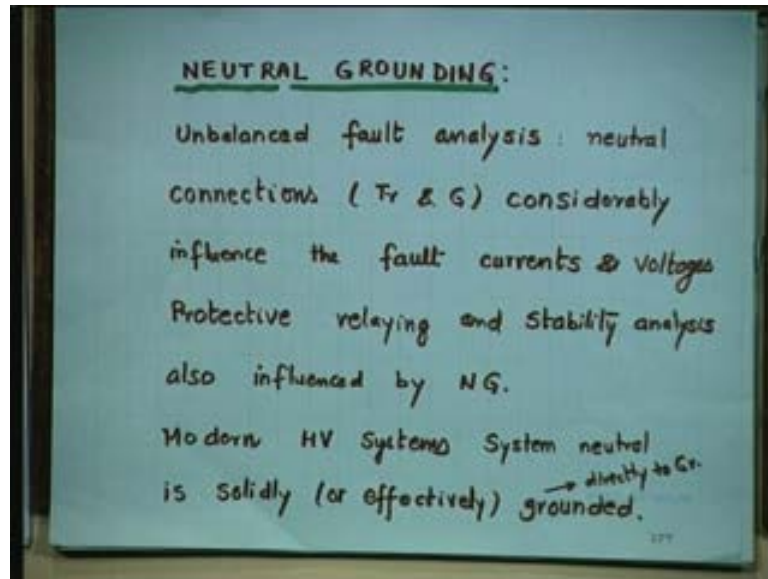 NEUTRAL GROUNDING:
Unbalanced fault analysis : neutral
connections ( Tr & G) considerably
influence the fault currents & voltages
Protective relaying and Stability analysis
also influenced by NG.
Modern HV Systems System neutral
→ directly to Gr.
is Solidly (or effectively) grounded.